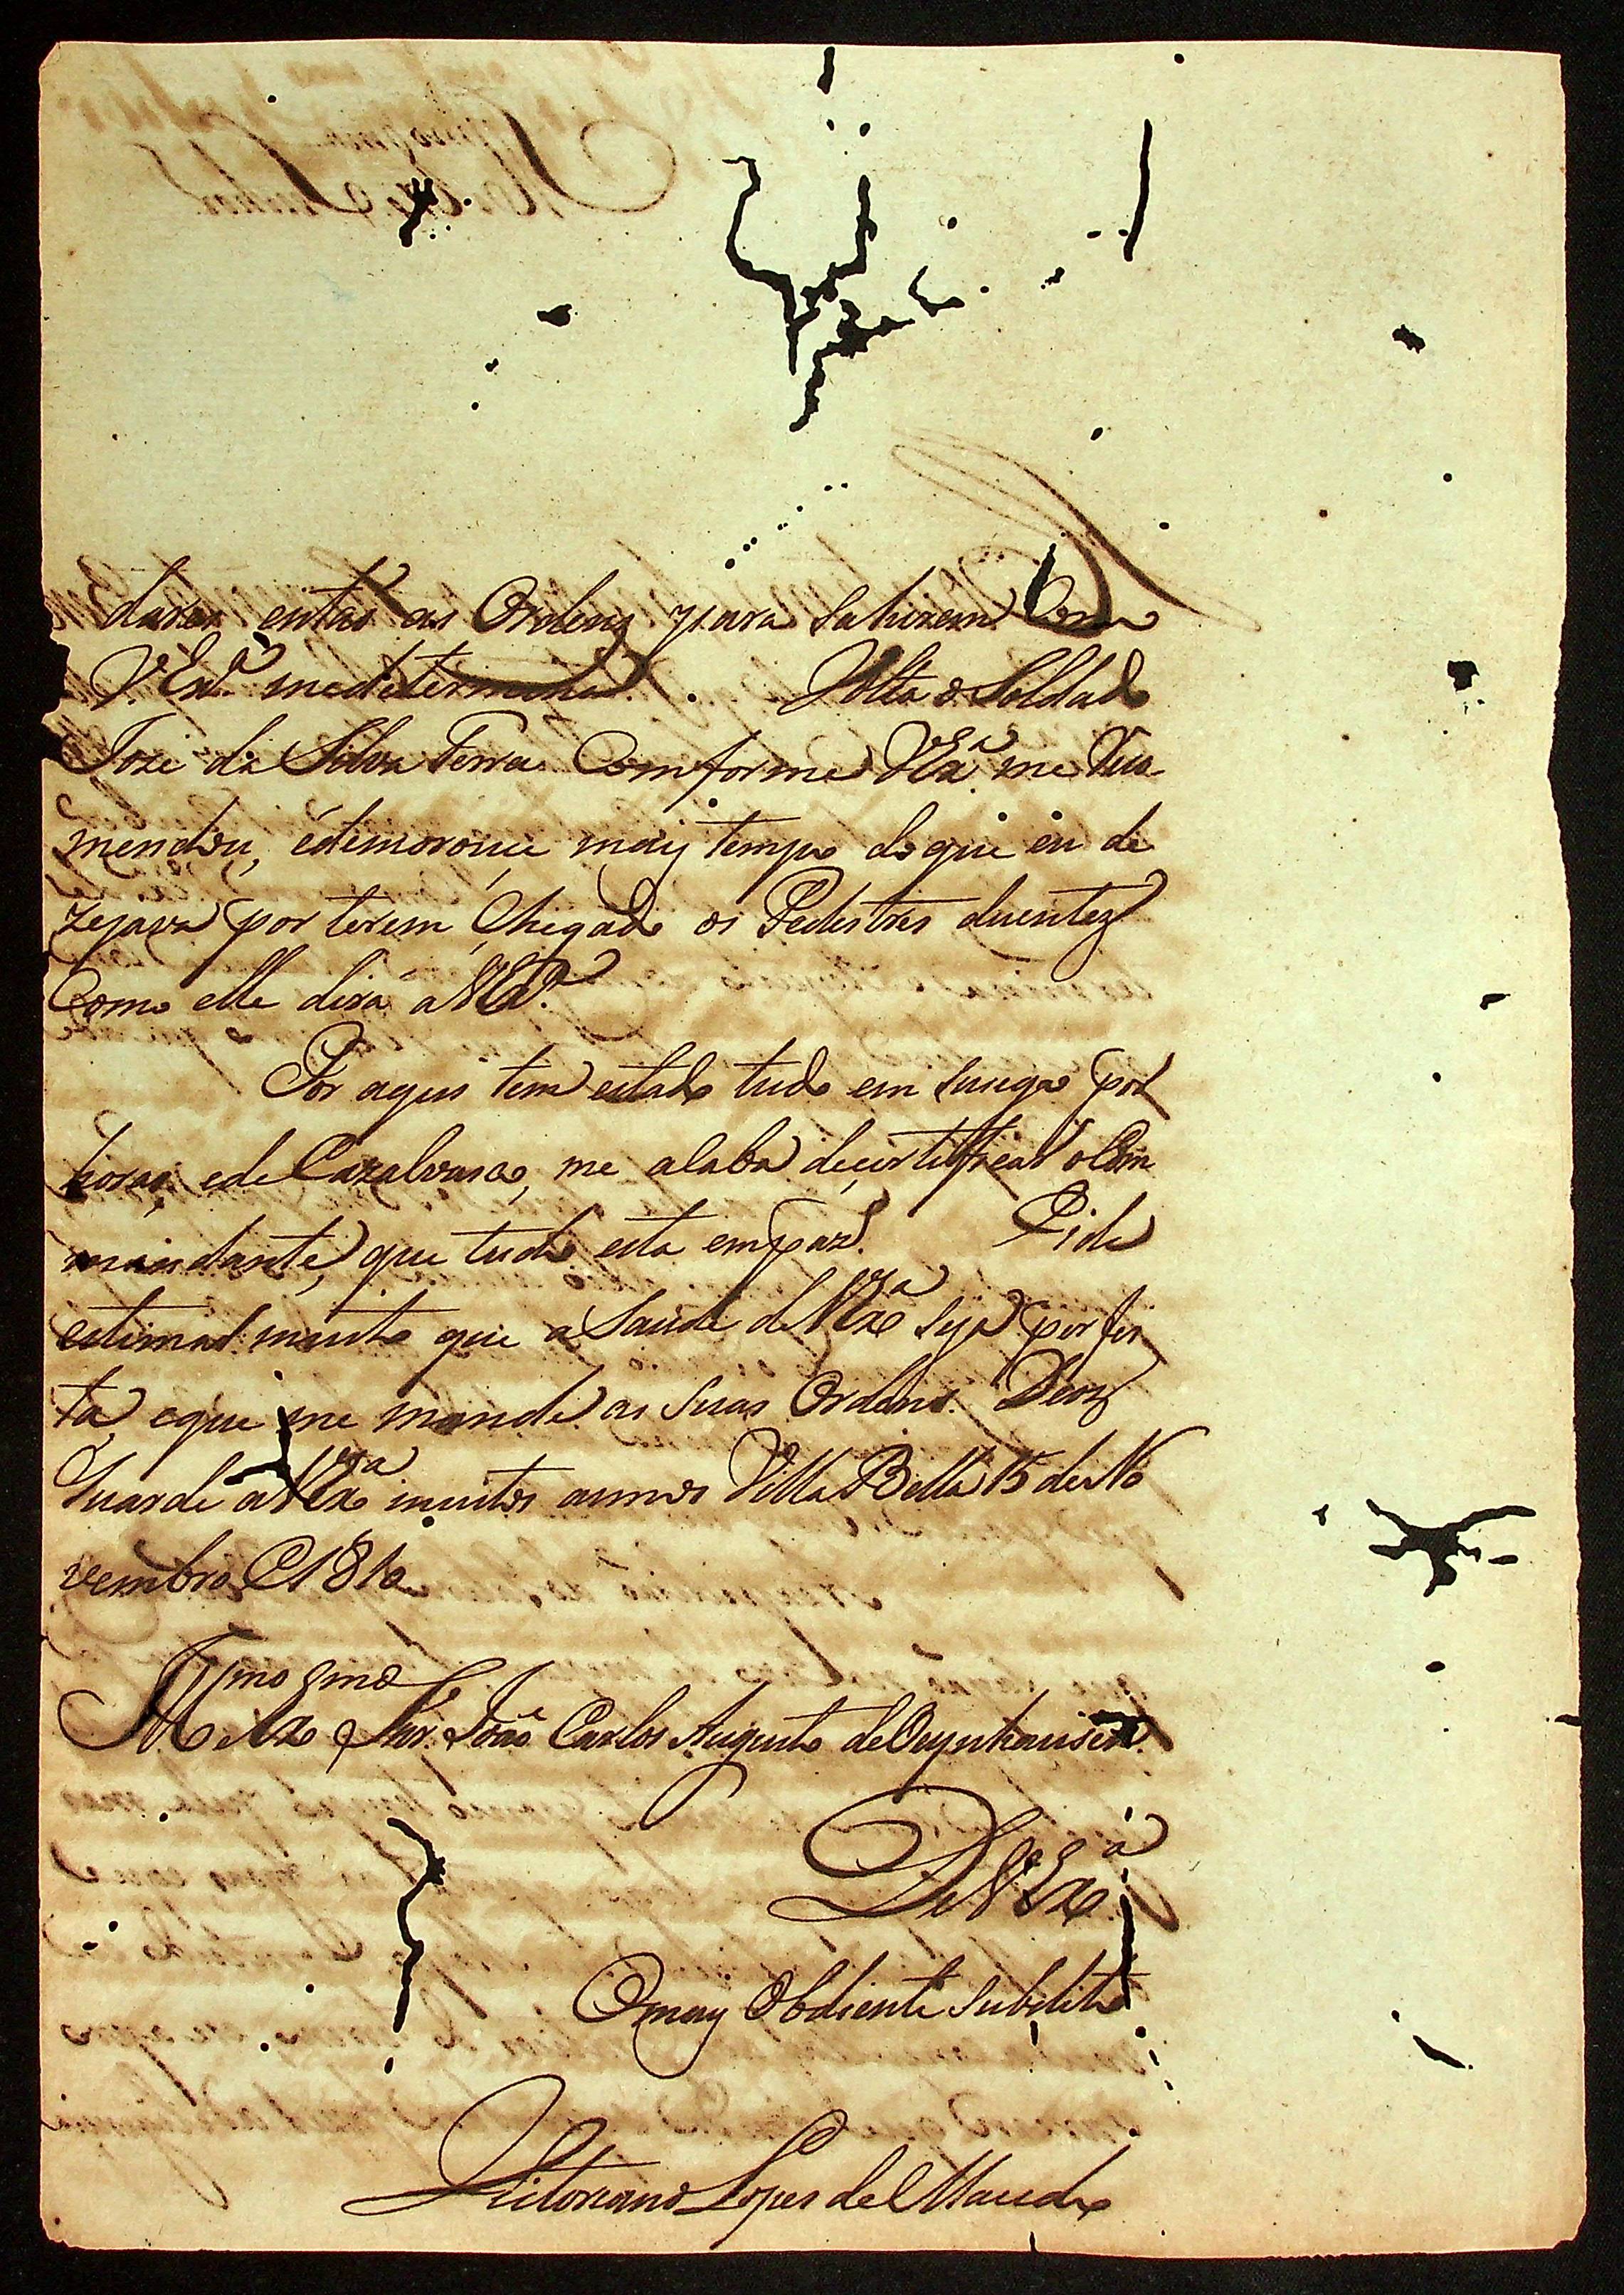 darei entaõ as Ordens para Sahirem Com
V. Exª medetermina. Volta o Soldado
Joze da Silva Terra Comforme V Exª me
mendou, édemorouce mais tempo doque eu de
zejava por terem Chegado os Pedestres duentez
Como elle dirá aV Exª
Por aqui tem estado tudo em por
horas, ede Cazalvasco, me acaba decirtificar o Com
mandante, que tudo esta empaz.
estimarl mente que a Saude deV Exª Seja perfei
ta, eque me mande as Suas Ordens. Deos
Guarde aV Exª muitos annos Villa Bella 15 deNo
vembro 1816
Illmo e Exmo Snr. Joaõ Carlos Augusto deOeynhausen
DeV Exª
Omais Obdiente Subdito
Victoriano Lopes deMacedo